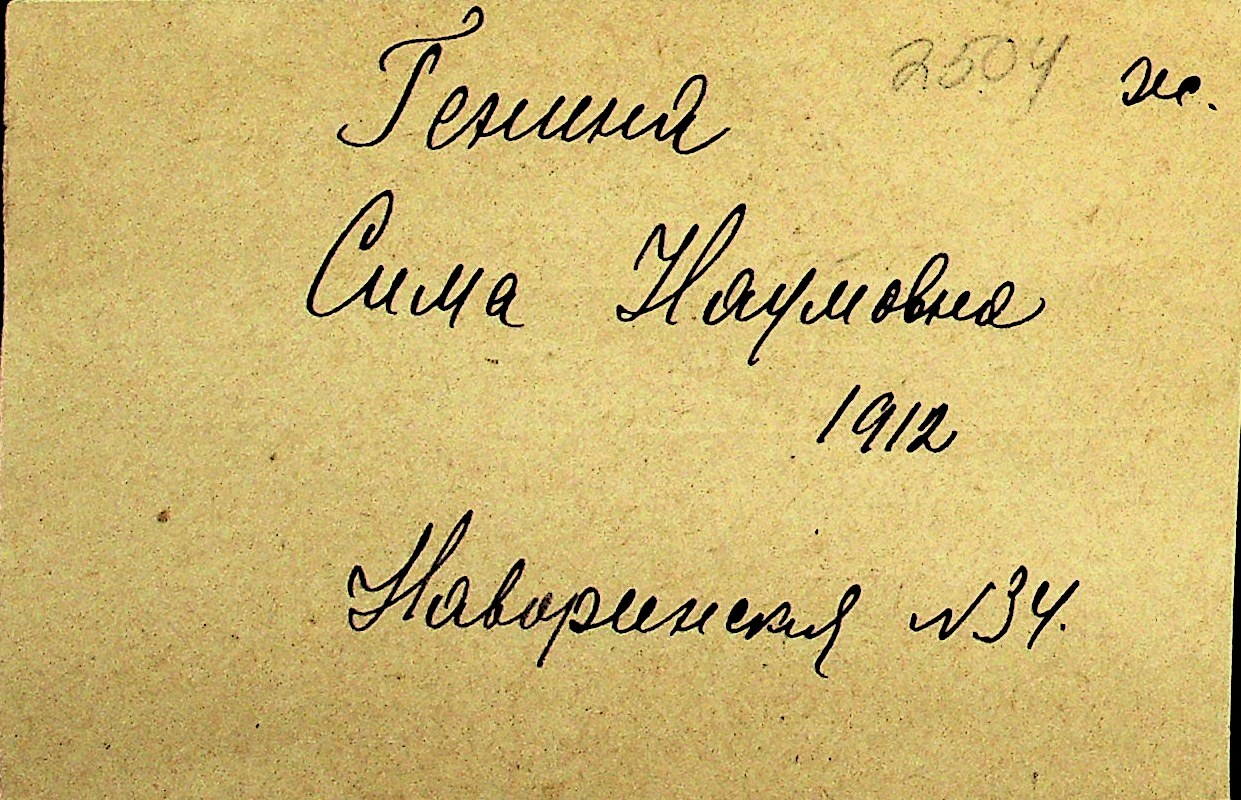 2504 ж.
Генина
Сима Наумовна
1912
Наваринская №34.